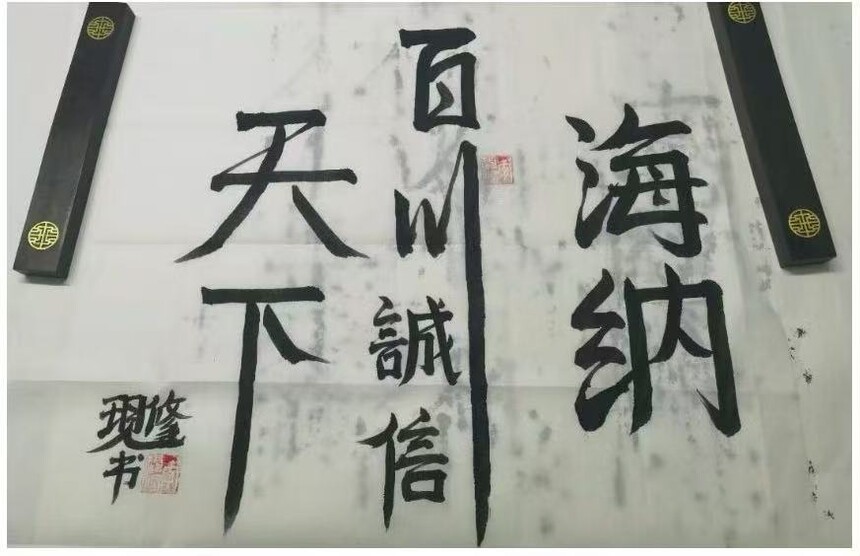 海纳
百川誠信
天下
现
书